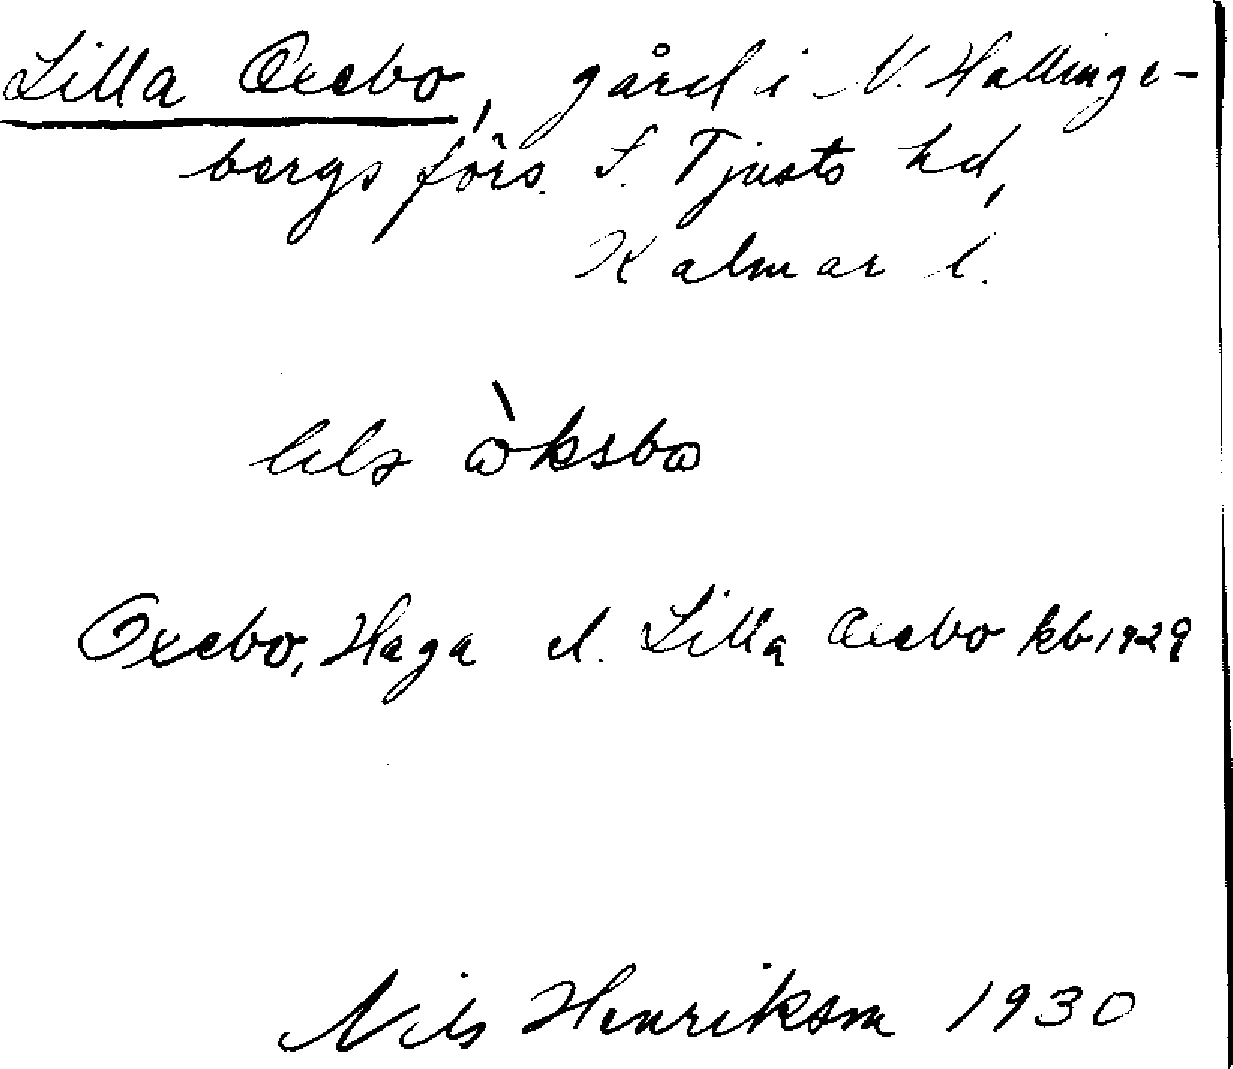 Lilla Oxebo, gård i N. Hallinge-
bergs förs. S. Tjusts hd,
Kalmar l.
òksbo
Oxebo, Haga el. Lilla Oxebo kb 1929
Nils Henrikson 1930